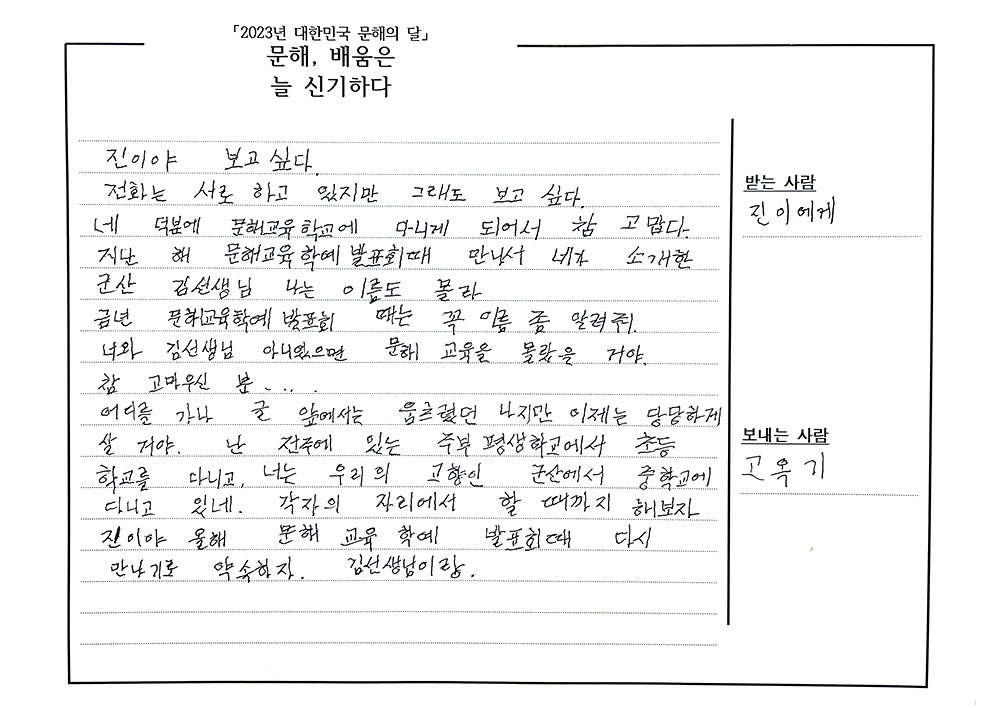 「2023년 대한민국 문해의 달」
문해, 배움은
늘 신기하다
진이야 보고 싶다.
전화는 서로 하고 있지만 그래도 보고 싶다.
네 덕분에 문해교육학교에 다니게 되어서 참 고맙다.
지난 해 문해교육학예발표회때 만나서 네가 소개한
군산 김선생님 나는 이름도 몰라
금년 문해교육학예 발표회 때는 꼭 이름 좀 알려줘.
너와 김선생님 아니었으면 문해 교육을 몰랐을 거야.
참 고마우신 분....
어디를 가나 글 앞에서는 움츠렸던 나지만 이제는 당당하게
살 거야. 난 전주에 있는 주부 평생학교에서 초등
학교를 다니고, 너는 우리의 고향인 군산에서 중학교에
다니고 있네. 각자의 자리에서 할 때까지 해보자
진이야 올해 문해 교육 학예 발표회때 다시
만나기로 약속하자. 김선생님이랑.
받는 사람
진이에게
보내는 사람
고옥기